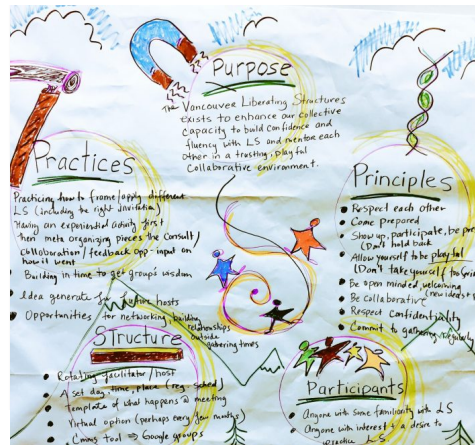 Purpose
The Vancouver Liberating Structures
exists to enhance our collective
capacity to build confidence and
fluency with LS and mentor each
other in a trusting, playful
Collaborative environment.
Practices
Practicing how to frame/apply different
LS (including the right invitation)
Having an experiential activity first
then meta organizing pieces the consult/
collaboration/feedback opp - input on
how it went
Building in time to get group's wisdom
Idea generate for hosts
Opportunities for networking, building
relationships
outside
gathering times
Principles
Respect each other
Come prepared
Show up, participate, be pre
(Don't hold back
Allow yourself to be playful
(Don't take yourself too
Be open minded, welcoming
(new ideas
Be Collaborative
Respect Confidentiality
Commit to gathering regularly
Structure
Rotating facilitator/host
A set day, time, place (reg. sched)
Template of what happens @ meeting
Virtual option (perhaps every few months)
tool ⇒ Google groups
Participants
Anyone with some familiarity with LS
Anyone with interest & a desire to
practice LS